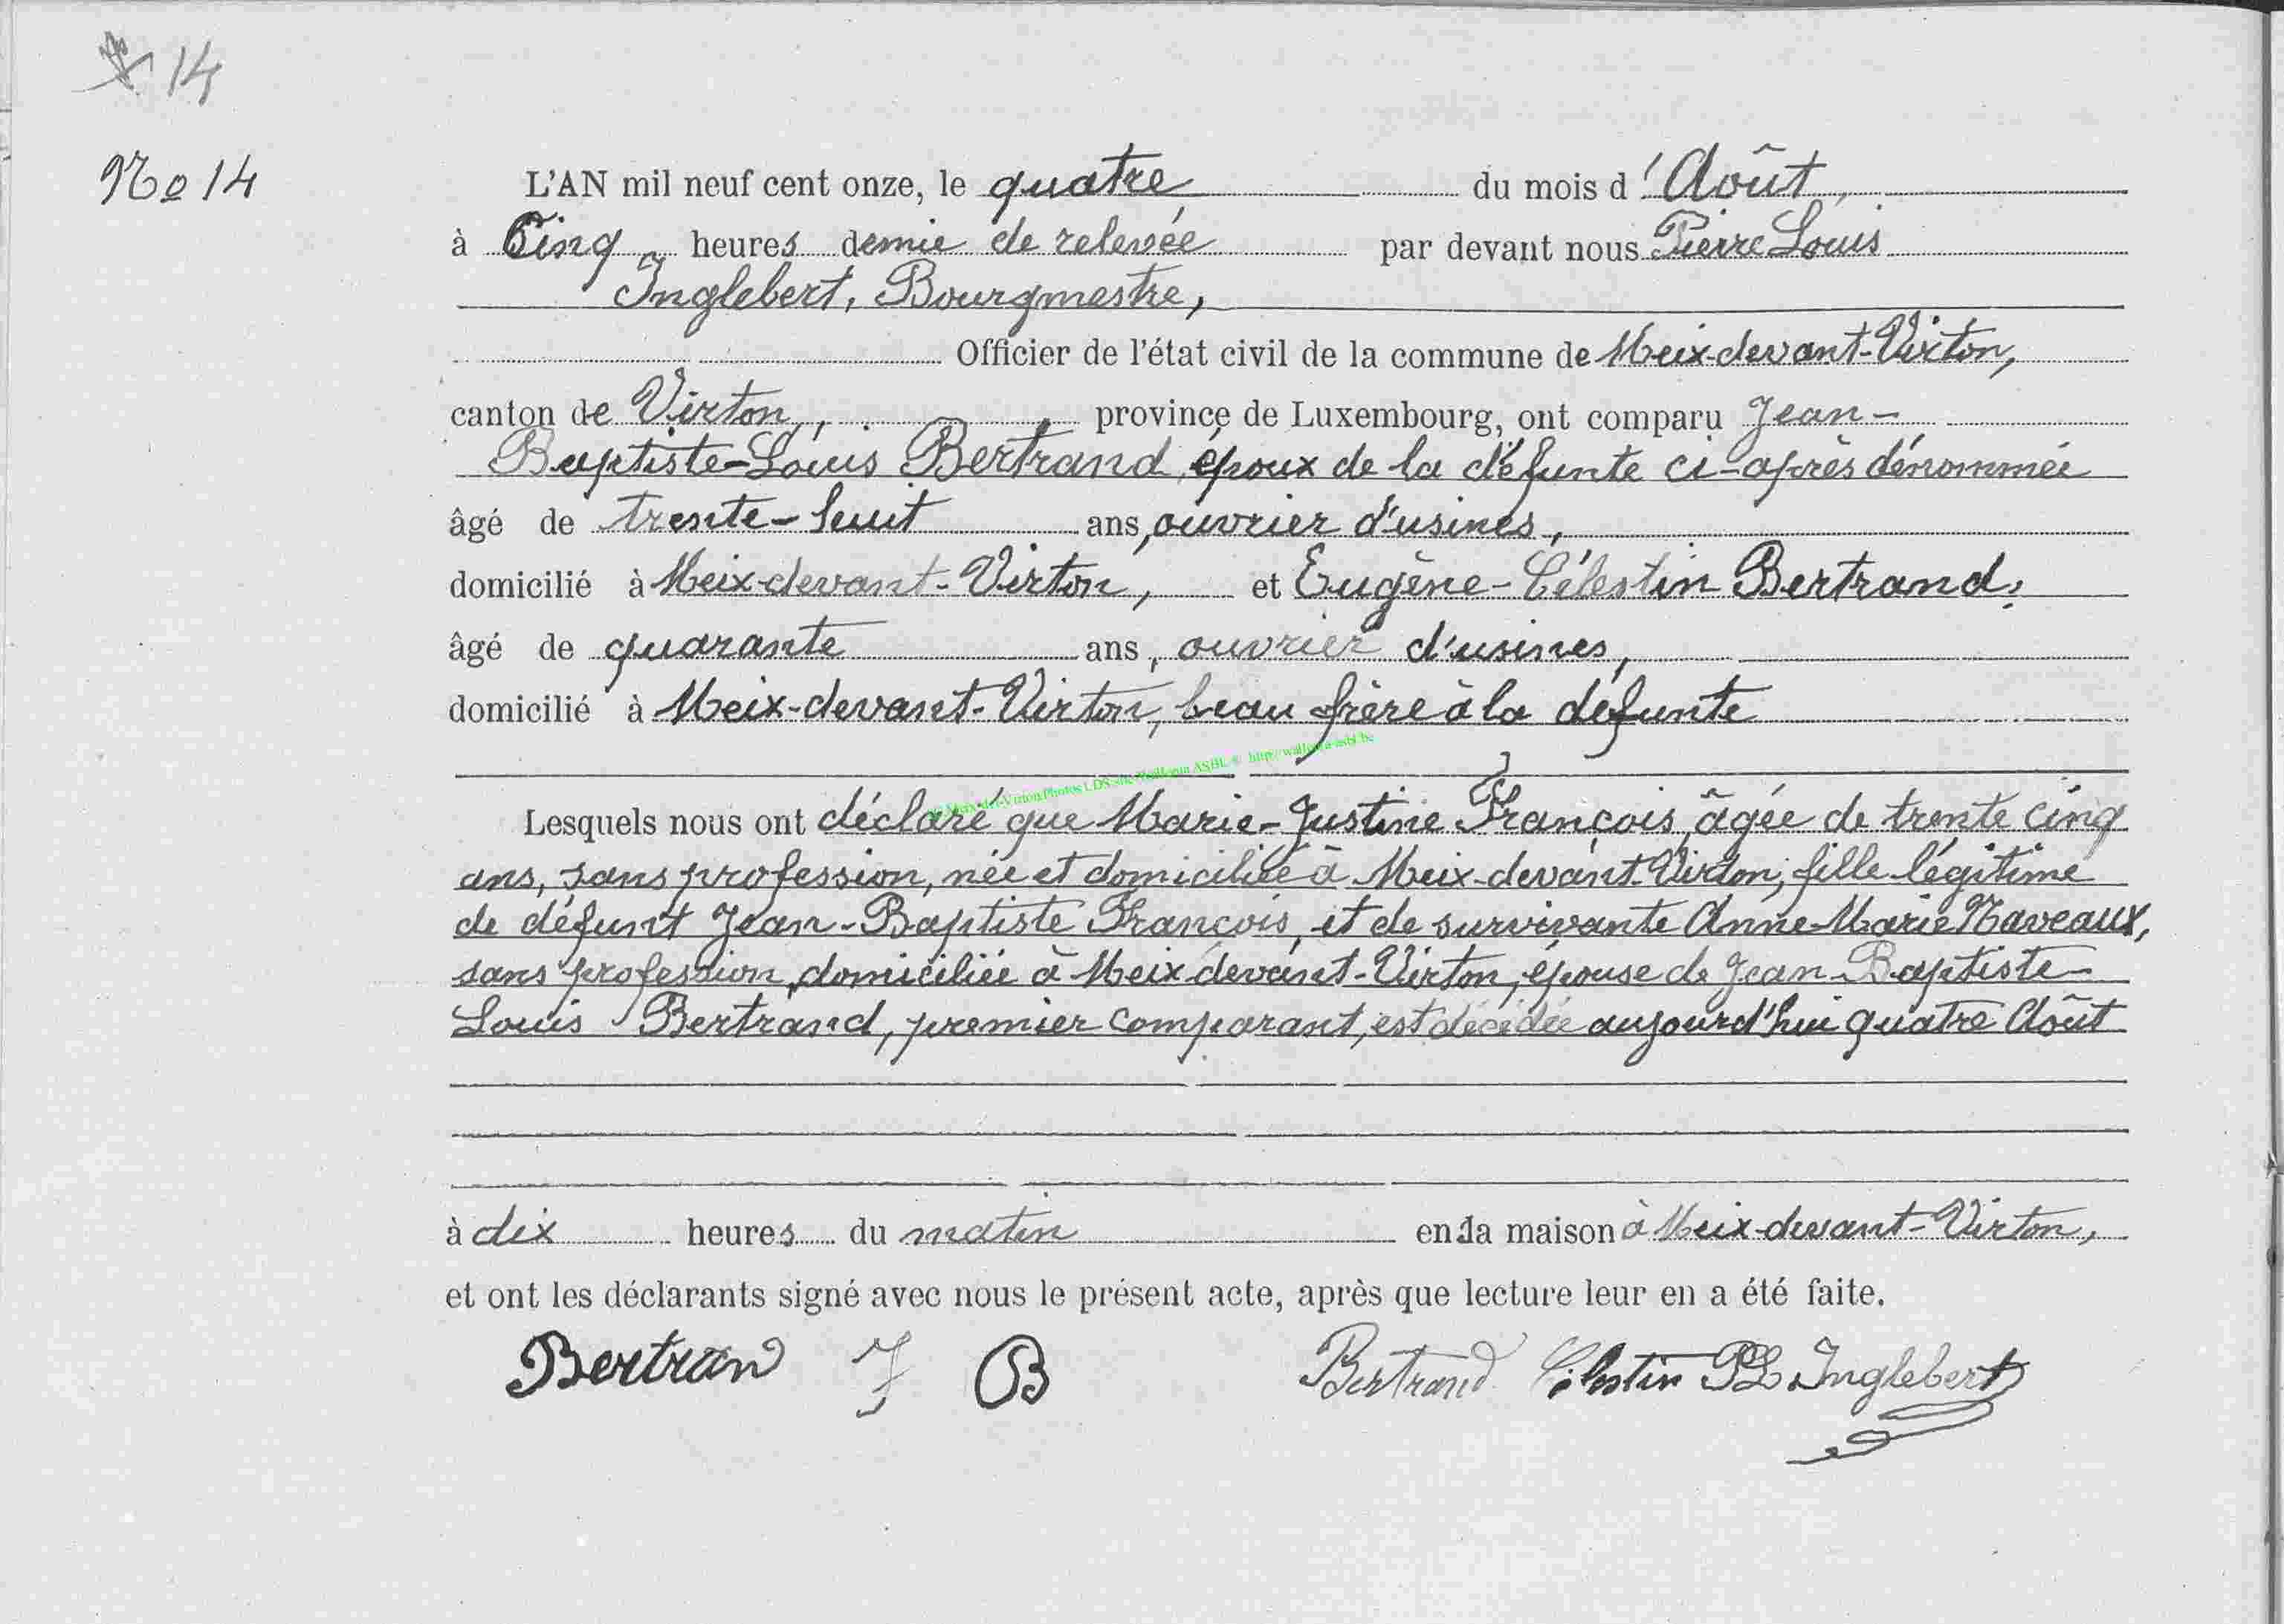 14
No 14
L'AN mil neuf cent onze, le quatre du mois d'Août,
à Cinq heures demie de relevée par devant nous Pierre Louis
Inglebert, Bourgmestre,
Officier de l'état civil de la commune de Meix-devant-Virton,
canton de Virton, province de Luxembourg, ont comparu Jean-
Baptiste-Louis Bertrand, époux de la défunte ci-après dénommée
âgé de trente-huit ans, ouvrier d'usines,
domicilié à Meix-devant-Virton, et Eugène-Célestin Bertrand,
âgé de quarante ans, ouvrier d'usines,
domicilié à Meix-devant-Virton, beau frère à la défunte
Lesquels nous ont déclaré que Marie-Justine François, âgée de trente cinq
ans, sans profession, née et domiciliée à Meix-devant-Virton, fille légitime
de défunt Jean-Baptiste François, et de survivante Anne-Marie Naveaux,
sans profession, domiciliée à Meix devant-Virton, épouse de Jean-Baptiste-
Louis Bertrand, premier comparant, est décédée aujourd'hui quatre Août
à dix heures du matin en la maison à Meix-devant-Virton,
et ont les déclarants signé avec nous le présent acte, après que lecture leur en a été faite.
Bertrand J B Bertrand Célestin PL Inglebert